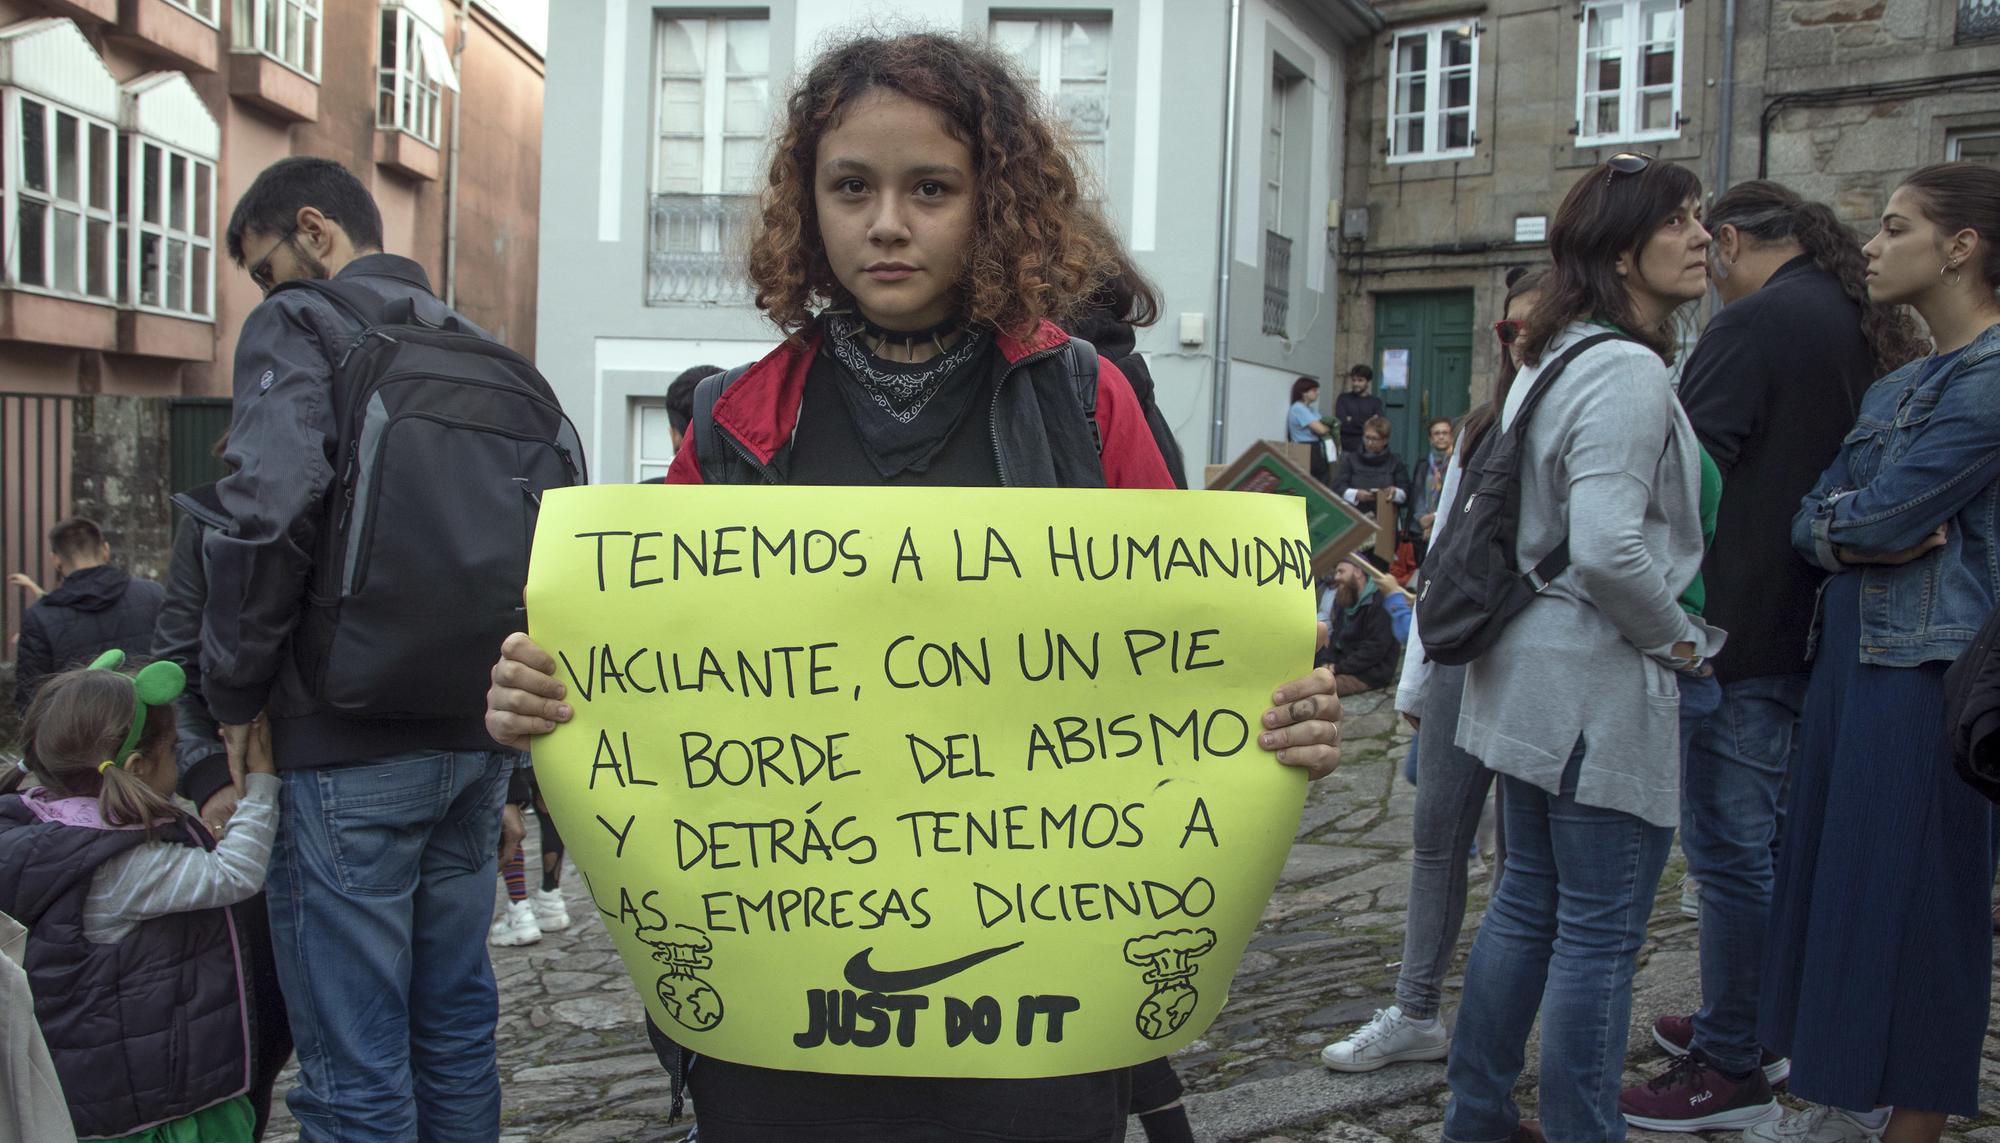 TENEMOS A LA HUMANIDAD
VACILANTE, CON UN PIE
AL BORDE DEL ABISMO
Y DETRÁS TENEMOS A
LAS EMPRESAS DICIENDO
JUST DO IT
FILA